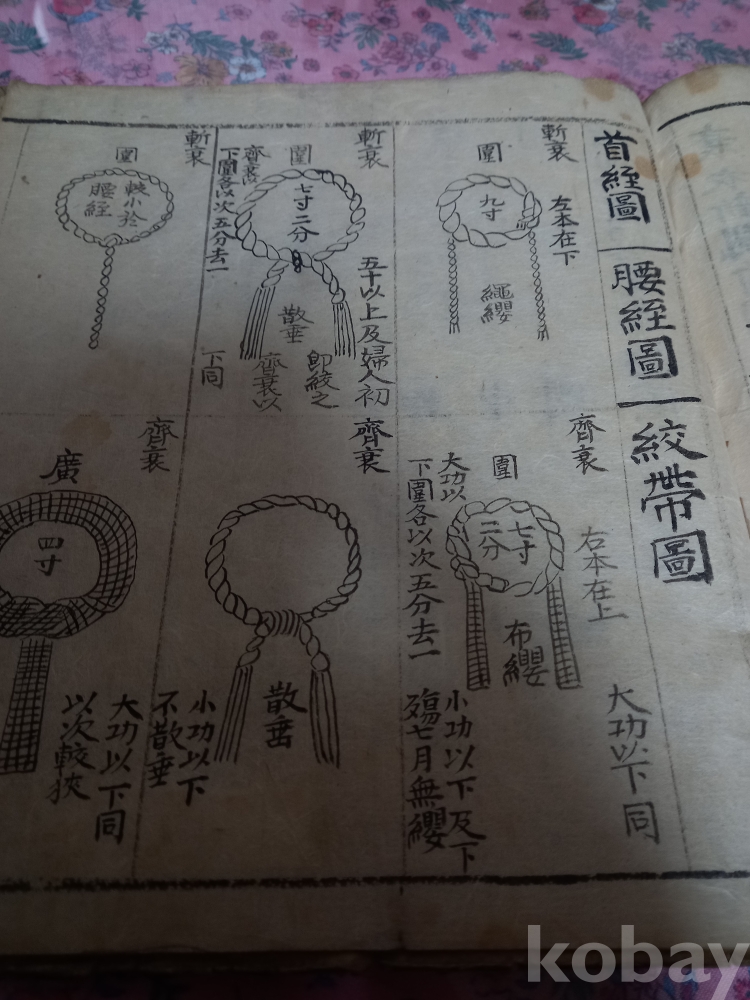 首絰圖 腰絰圖 絞帶圖
斬衰
圍
九寸
左本在下
繩纓
齊衰
圍
七寸
二分
右本在上
布纓
大功以下同
大功以
下圍各以次五分去一
小功以下及下
殤七月無纓
斬衰
圍
七寸二分
散垂
五十以上及婦人初
即絞之
齊衰以
下同
齊衰以
下圍各以次五分去一
齊衰
散垂
小功以下
不散垂
斬衰
圍
較小於
腰絰
齊衰
廣
四寸
大功以下同
以次較狹
kobay